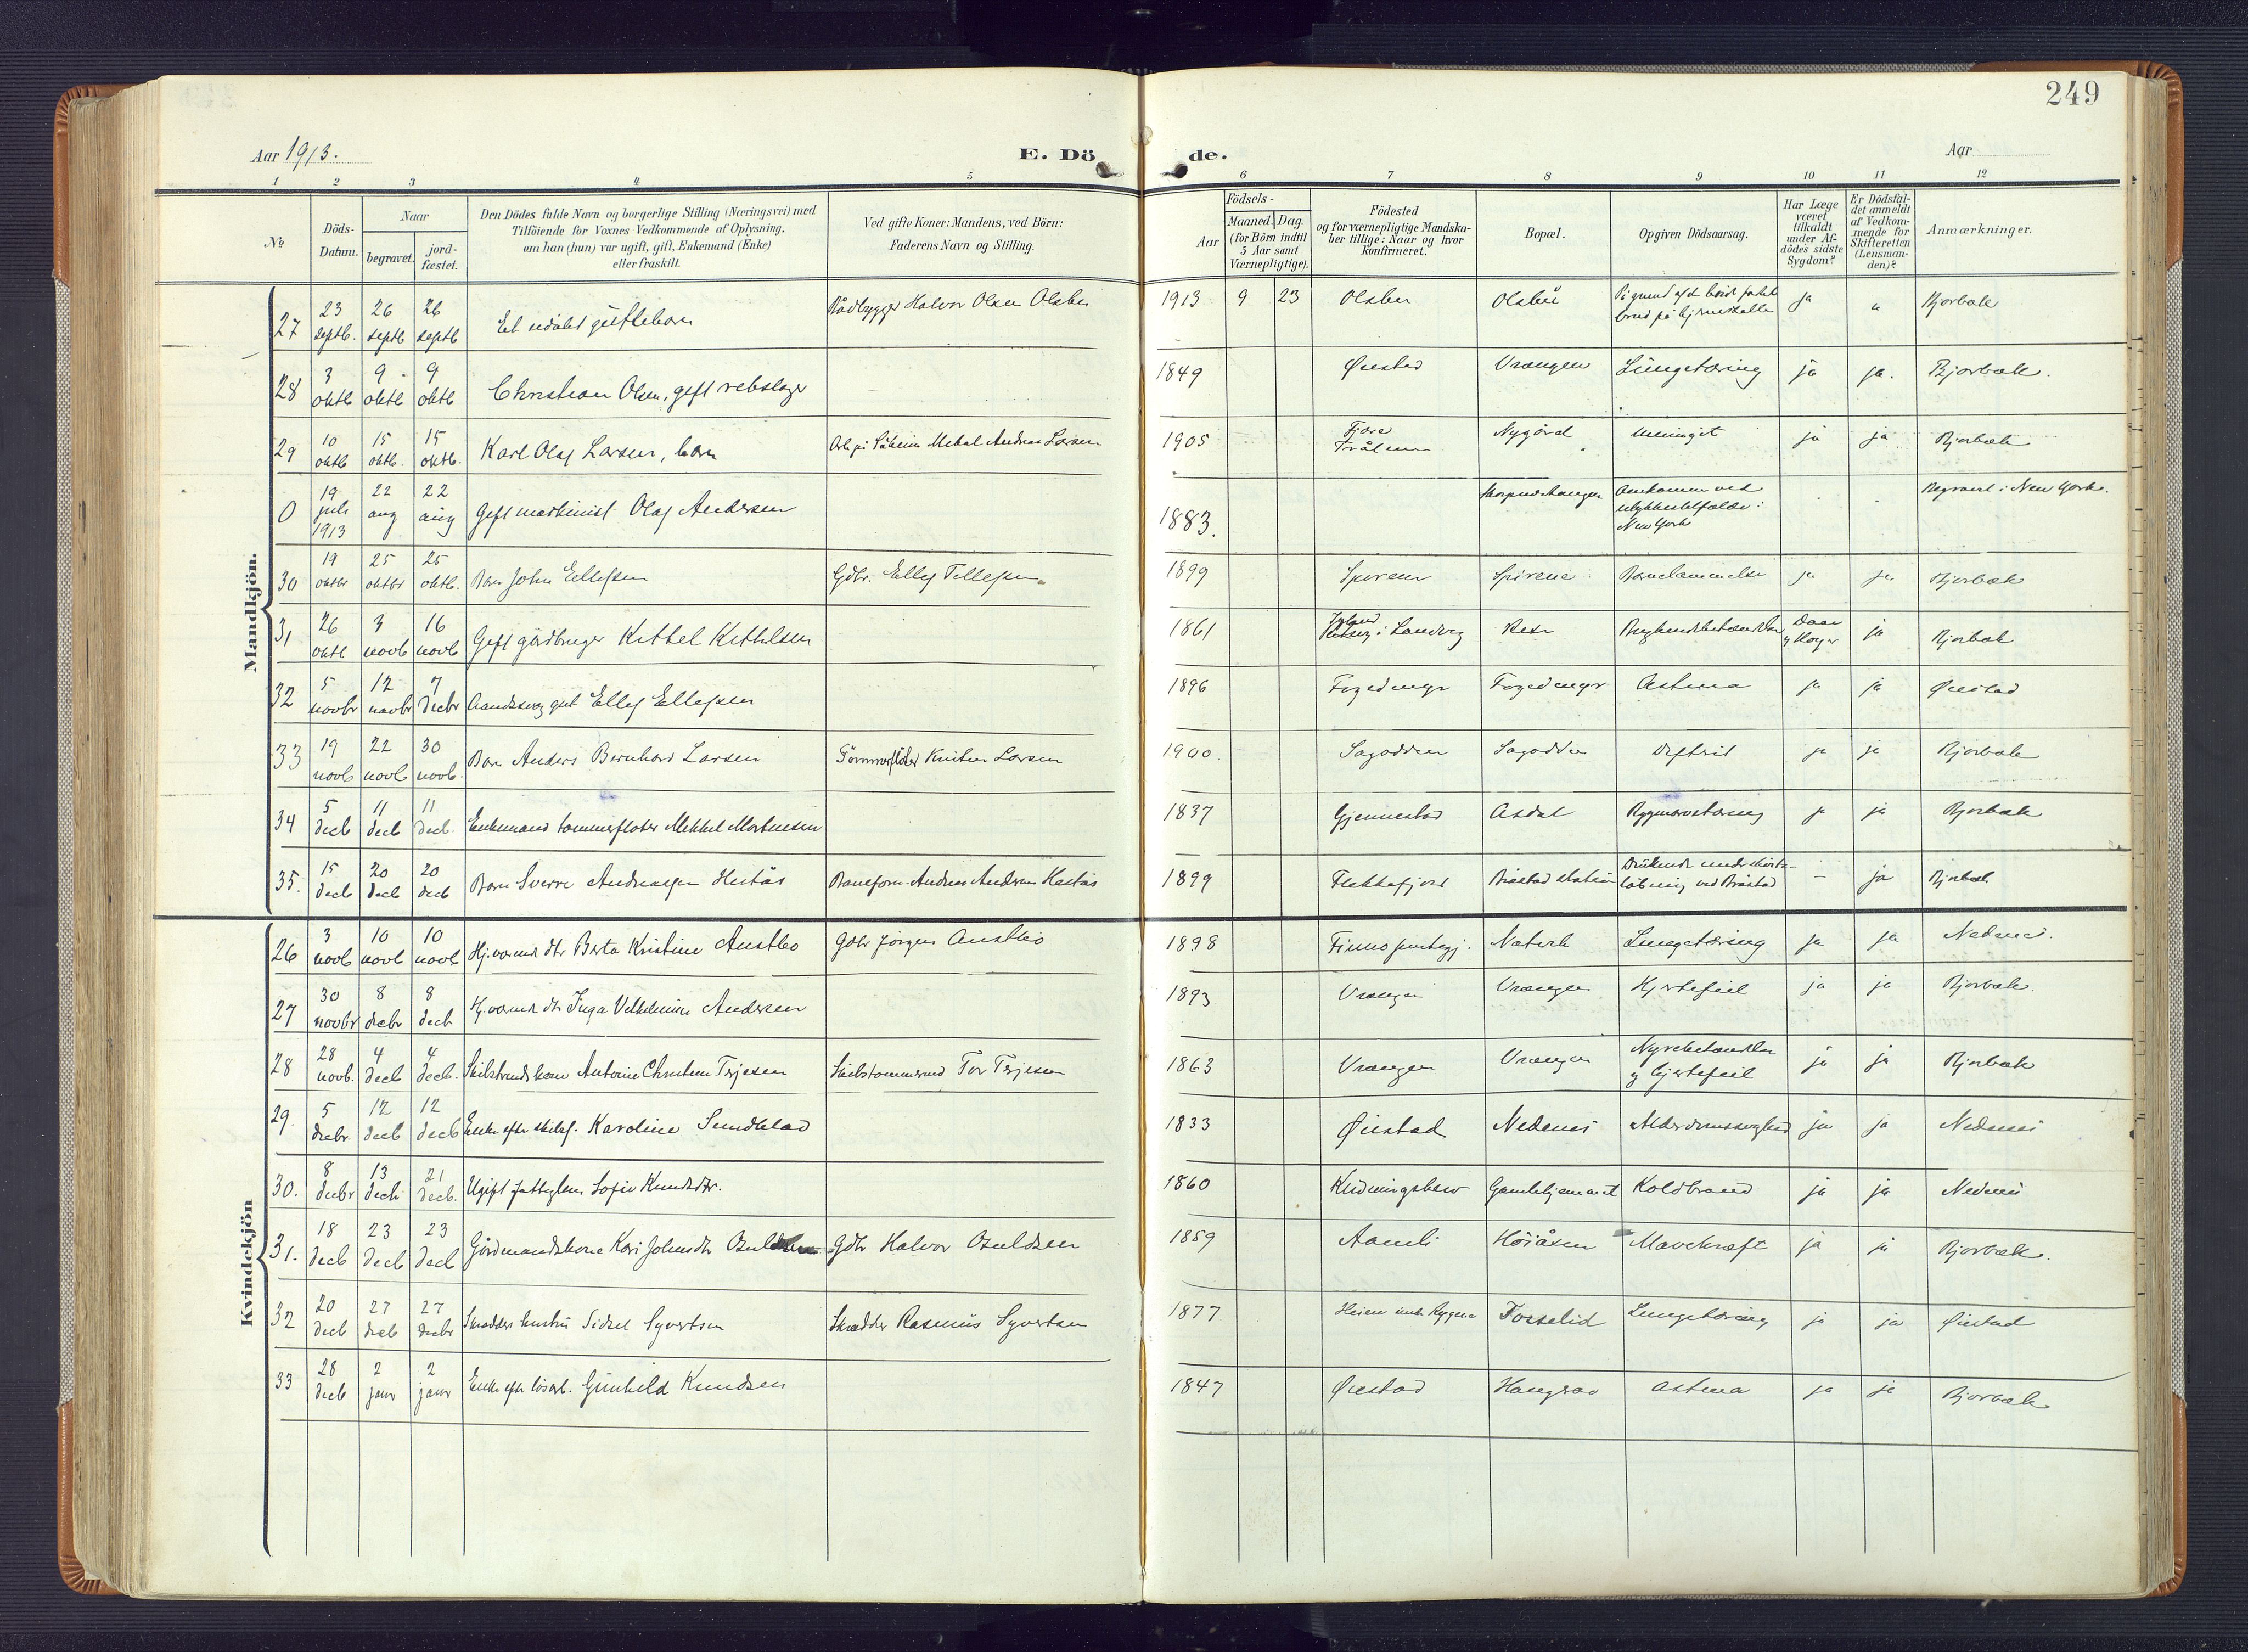 249
Aar 1913.
E. Dö
de.
Aar
1 2 3 4 5 6 7 8 9 10 11 12
No
Döds-
Datum.
Naar
begravet.
jord-
fæstet.
Den Dödes fulde Navn og borgerlige Stilling (Næringsvei) med
Tilföiende for Voxnes Vedkommende af Oplysning,
om han (hun) var ugift, gift, Enkemand (Enke)
eller fraskilt.
Ved gifte Koner: Mandens, ved Börn:
Faderens Navn og Stilling.
Födsels-
Aar
Maaned. Dag.
(for Börn indtil
5 Aar samt
Værnepligtige).
Födested
og for værnepligtige Mandska-
ber tillige: Naar og hvor
konfirmeret.
Bopæl.
Opgiven Dödsaarsag.
Har Læge
været
tilkaldt
under Af-
dödes sidste
Sygdom?
Er Dödsfal-
det anmeldt
af Vedkom-
mende for
Skifteretten
(Lensman-
den)?
Anmærkninger.
Mandkjön.
27 23 septb. 26 septb 26 septb Et udöbt guttebarn Halvor Olsen Olsbu 1913 9 23 Olsbu Olsbu ja " Bjorbæk
28 3 oktb 9 oktb 9 oktb Christian Olsen, gift rebslager 1849 Øiestad Vrængen Lungetæring ja ja. Bjorbæk.
29 10 oktb 15 oktb. 15 oktb. Karl Olaf Larsen, barn Andreas Larsen 1905 Nygård ja ja Bjorbæk
0 19 juli 1913 22 aug 22 aug Gift maskinist Olaf Andersen 1883. Omkommen ved ulykkestilfælde i New York Begravet i New York.
30 19 oktbr 25 oktbr 25 oktb. Barn John Ellefsen Gdbr. Ellef Tellefsen 1899 Spirene Spirene Barnelammelse ja ja Bjorbæk
31 26 oktb 3 novb 16 novb Gift gårdbruger Kittel Kittilsen 1861 i Landvig ja Bjorbæk
32 5 novbr 12 novbr 7 decbr Aandssvag gut Ellef Ellefsen 1896 Fogedmyr Fogedmyr Astma ja ja Øiestad
33 19 novb 22 novb 30 novb. Barn Anders Bernhard Larsen Tömmerflöter Larsen 1900. Sagodden Sagodden Difterit ja ja Bjorbæk
34 5 decb 11 decb 11 decb. Enkemand tømmerfløter Mekkel Mortensen 1837 Gjennestad Asdal Rygmarvstæring ja ja Bjorbæk
35. 15 decb 20 decb 20 decb Barn Sverre Andreassen Hestås Baneform. Andreas Andersen Hestås 1899 Flekkefjord Bråstad station ved Bråstad – ja Bjorbæk
Kvindekjön
26 3 novb 10 novb 10 novb Hj.værende dtr Berta Kristine Austbö Gdbr Jörgen Austbö 1898 Næverk Lungetæring ja ja Nedenes.
27 30 novbr 8 decbr 8 decb Hj.værende dtr Inga Vilhelmine Andersen 1893 Vrængen Vrængen Hjertefeil ja ja Bjorbæk.
28 28 novb. 4 decb 4 decb. Antonie Terjesen Skibstømmermand Tor Terjesen 1863 Vrængen Vrængen Nyrebetændelse og hjertefeil ja ja Bjorbæk
29. 5 decbr. 12 decb 12 decb Enke efter skibsf. Karoline Sundblad 1833 Øiestad Nedenes Alderdomssvaghed ja ja Nedenes
30. 8 decbr 13 decb 21 decb. Ugift fattiglem Sofie Knudsdtr. 1860 Gamlehjemmet Koldbrand ja ja Nedenes
31. 18 decb 23 decb 23 decb Gårdmandskone Kari Johnsdtr Osuldsen Gdbr Halvor Osuldsen 1859 Aamli Höiåsen Mavekræft ja ja Bjorbæk.
32 20 decb 27 decb 27 decbr Skrædders hustru Sidsel Syvertsen Skrædder Rasmus Syvertsen 1877 Fosselid Lungetæring ja ja Øiestad
33 28 decb 2 janr 2 janr Enke efter lösarb. Gunhild Knudsen 1847 Øiestad Haugerao astma ja ja Bjorbæk